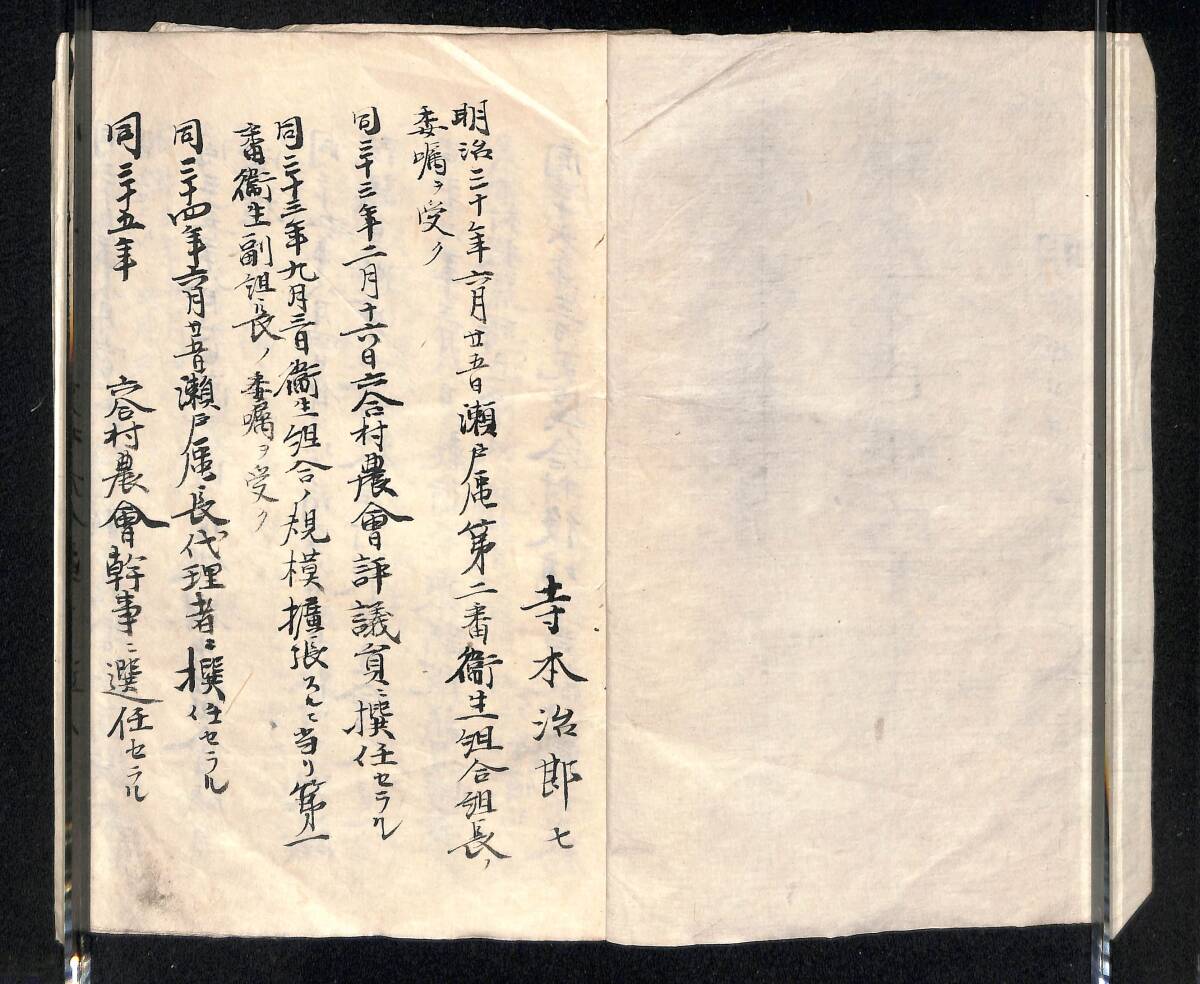 寺本治郎七
明治三十年六月廿五日瀬戸区第二番衞生組合組長ノ
委嘱ヲ受ク
同三十三年二月十六日六合村農會評議員ニ撰任セラル
同三十三年九月三日衞生組合ノ規模擴張スルニ当リ第一
番衞生副組長ノ委嘱ヲ受ク
同三十四年六月廿五日瀬戸区長代理者ニ撰任セラル
同三十五年 六合村農會幹事ニ選任セラル